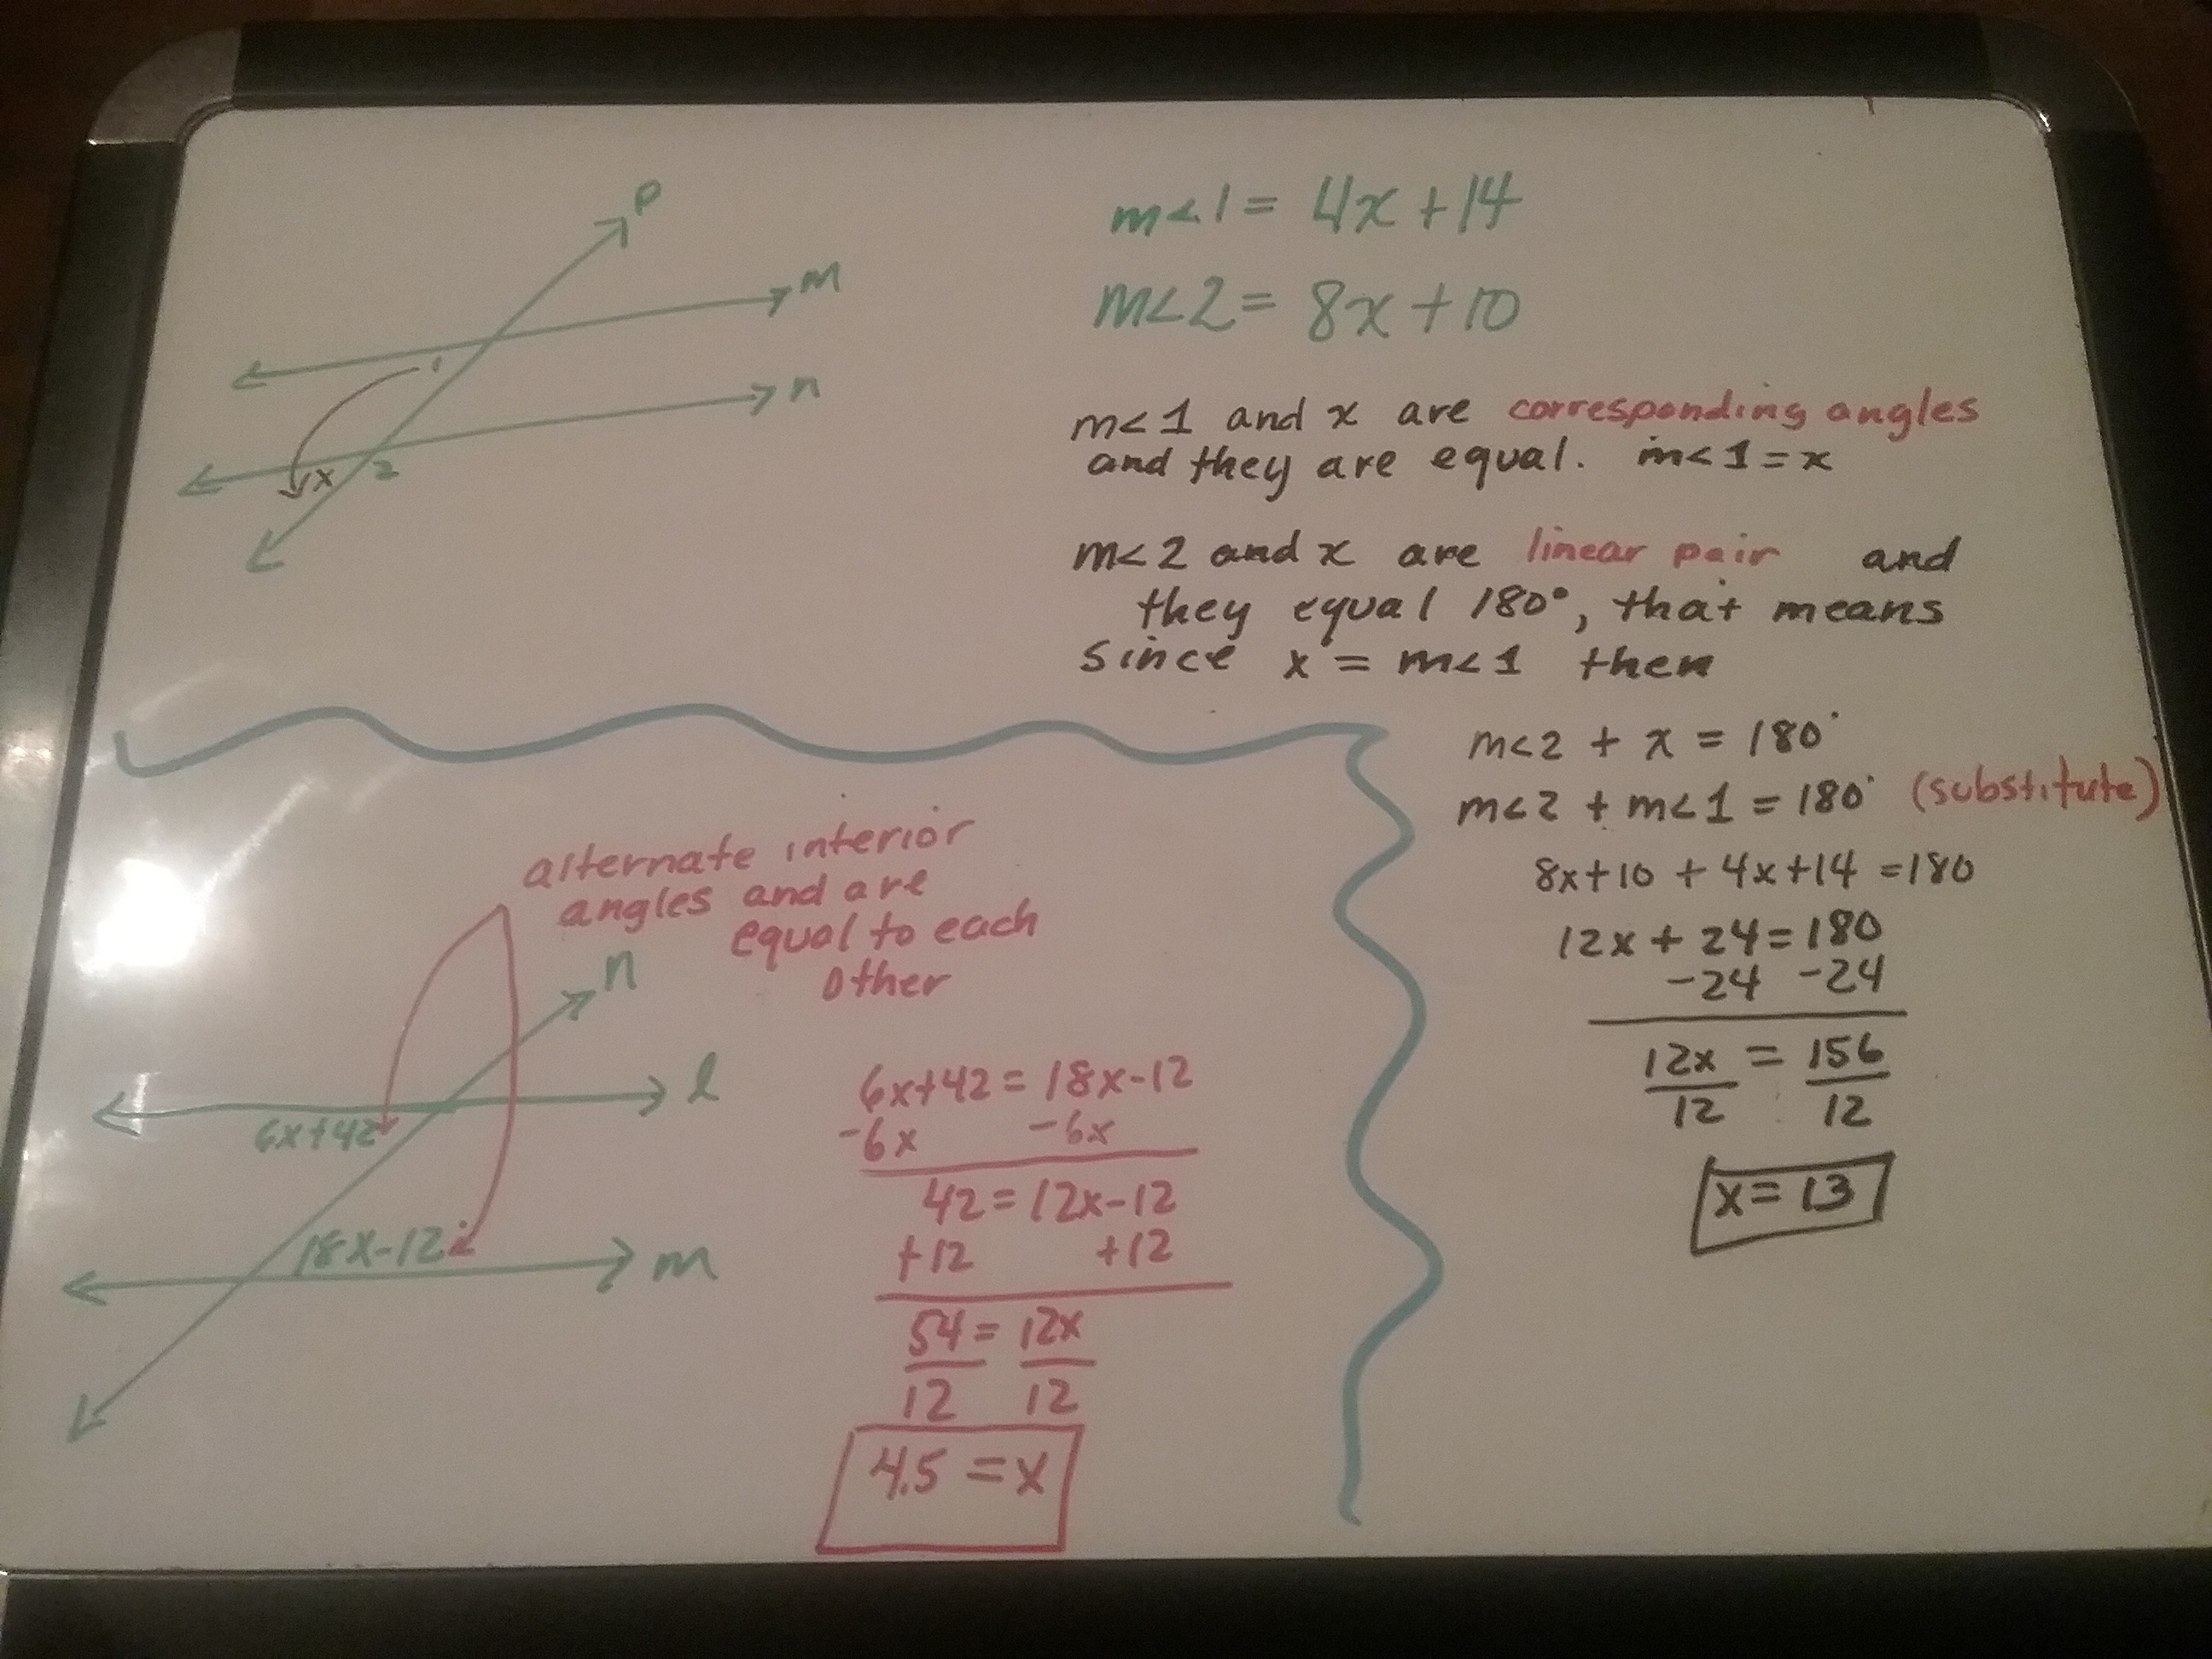 p
m
n
1
x
2
m<1 = 4x+14
m<2 = 8x+10
m<1 and x are corresponding angles
and they are equal. m<1=x
m<2 and x are linear pair and
they equal 180°, that means
since x = m<1 then
m<2 + x = 180°
m<2 + m<1 = 180° (substitute)
8x+10 + 4x+14 =180
12x + 24=180
-24 -24
12x = 156
12 12
x=13
alternate interior
angles and are
equal to each
other
n
l
6x+42
18x-12
m
6x+42=18x-12
-6x -6x
42=12x-12
+12 +12
54=12x
12 12
4.5=x